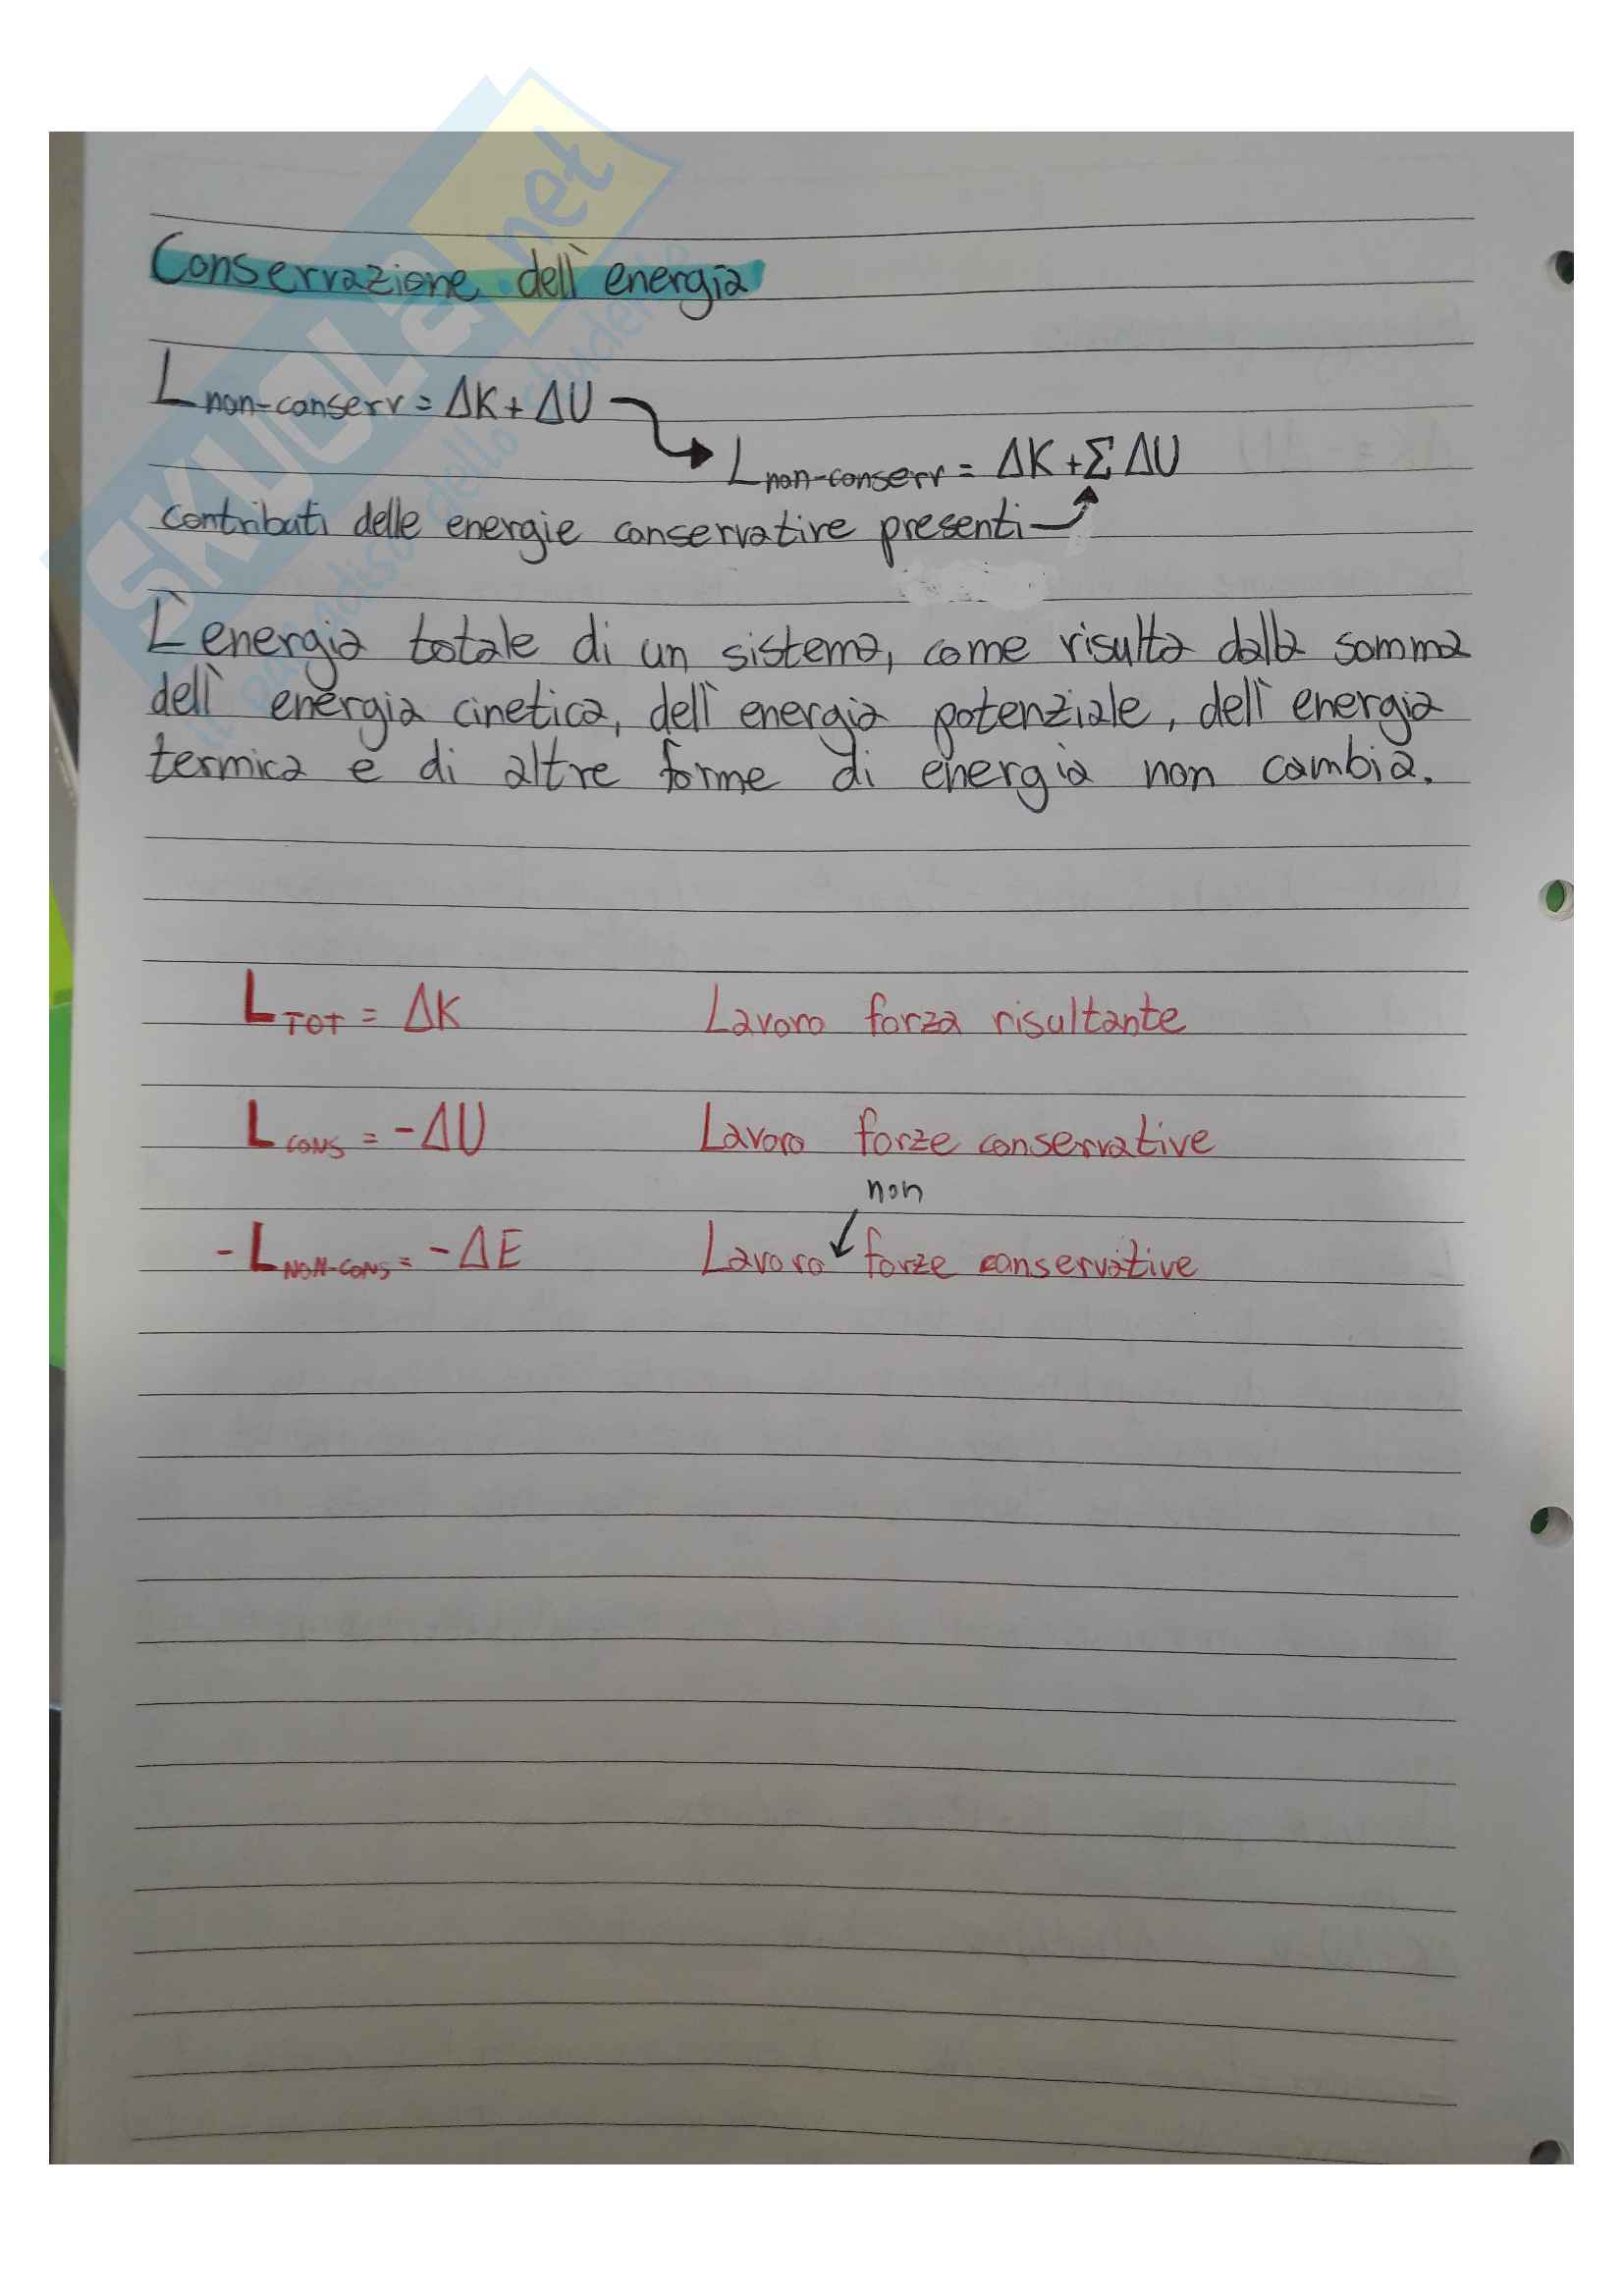 Conservazione dell'energia
L non-conserv = ΔK + ΔU
L non-conserr = ΔK + Σ ΔU
contributi delle energie conservative presenti
L'energia totale di un sistema, come risulta dalla somma
dell'energia cinetica, dell'energia potenziale, dell'energia
termica e di altre forme di energia non cambia.
L TOT = ΔK Lavoro forza risultante
L CONS = -ΔU Lavoro forze conservative
non
- L NON-CONS = -ΔE Lavoro forze conservative
SKUOLA.net
il paradiso dello studente